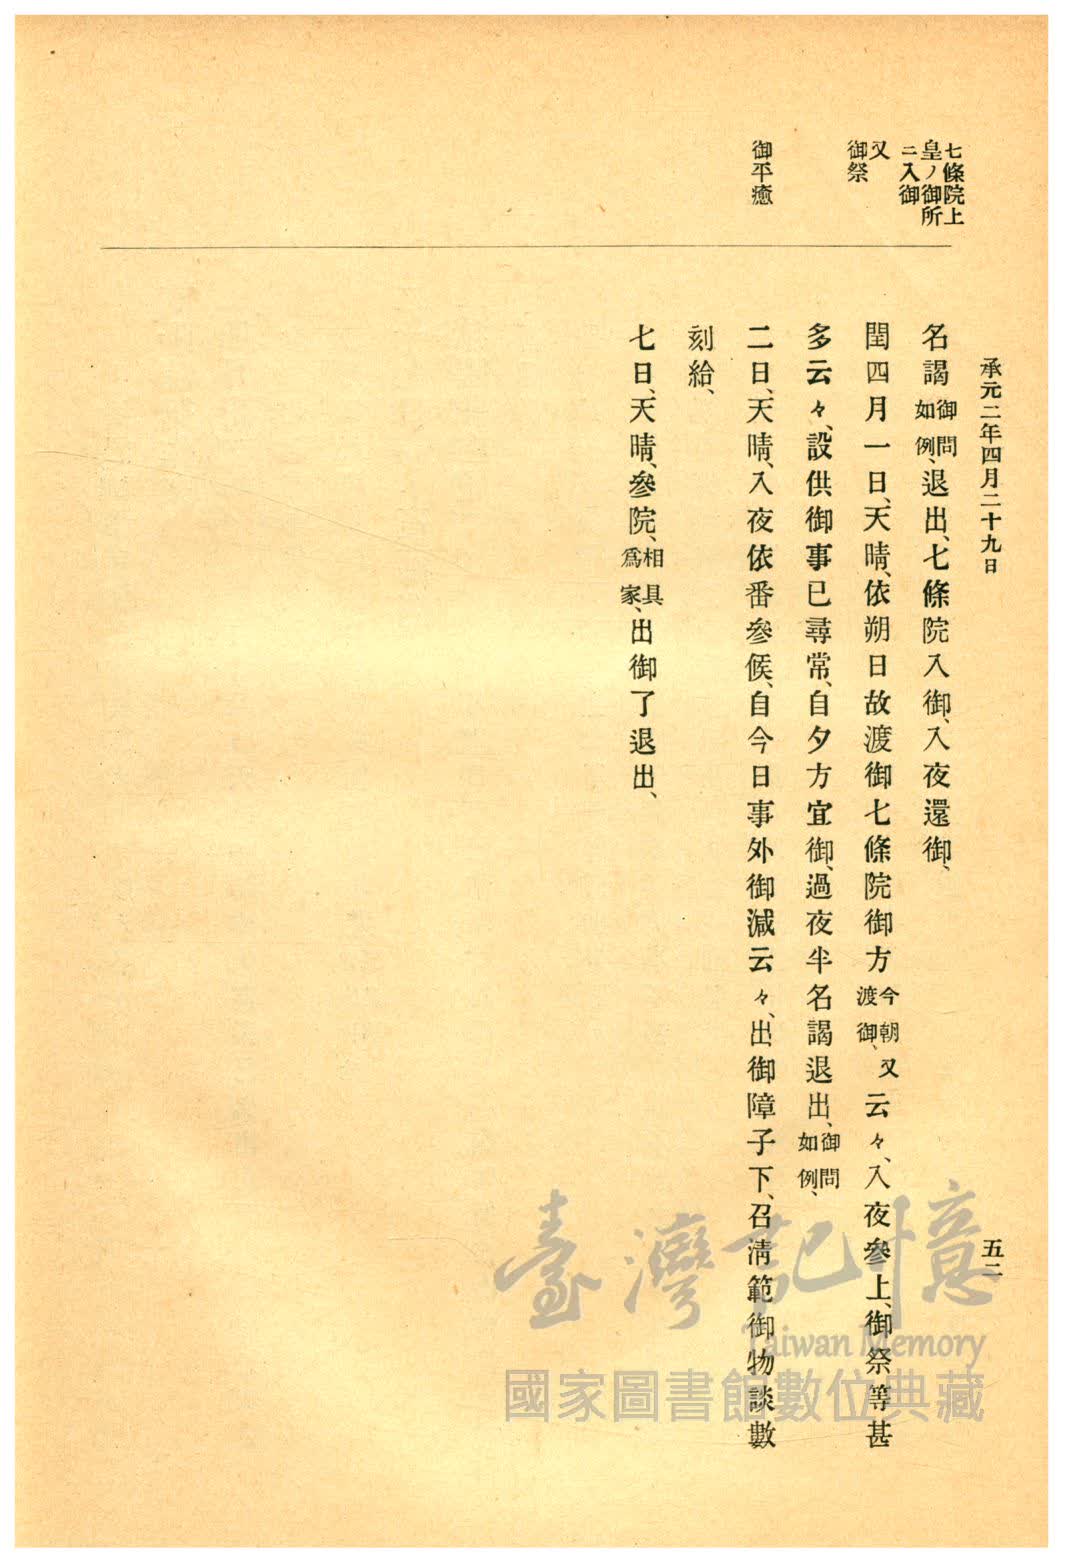 承元二年四月二十九日
五二
七條院上
皇ノ御所
ニ入御
又
御祭
御平癒
名謁御問如例、退出、七條院入御、入夜還御、
閏四月一日、天晴、依朔日故渡御七條院御方今朝又渡御、云々、入夜參上、御祭等甚
多云々、設供御事已尋常、自夕方宜御、過夜半名謁退出、御問如例、
二日、天晴、入夜依番參候、自今日事外御減云々、出御障子下、召淸範御物談數
刻給、
七日、天晴、參院、相具爲家、出御了退出、
臺灣記憶
Taiwan Memory
國家圖書館數位典藏